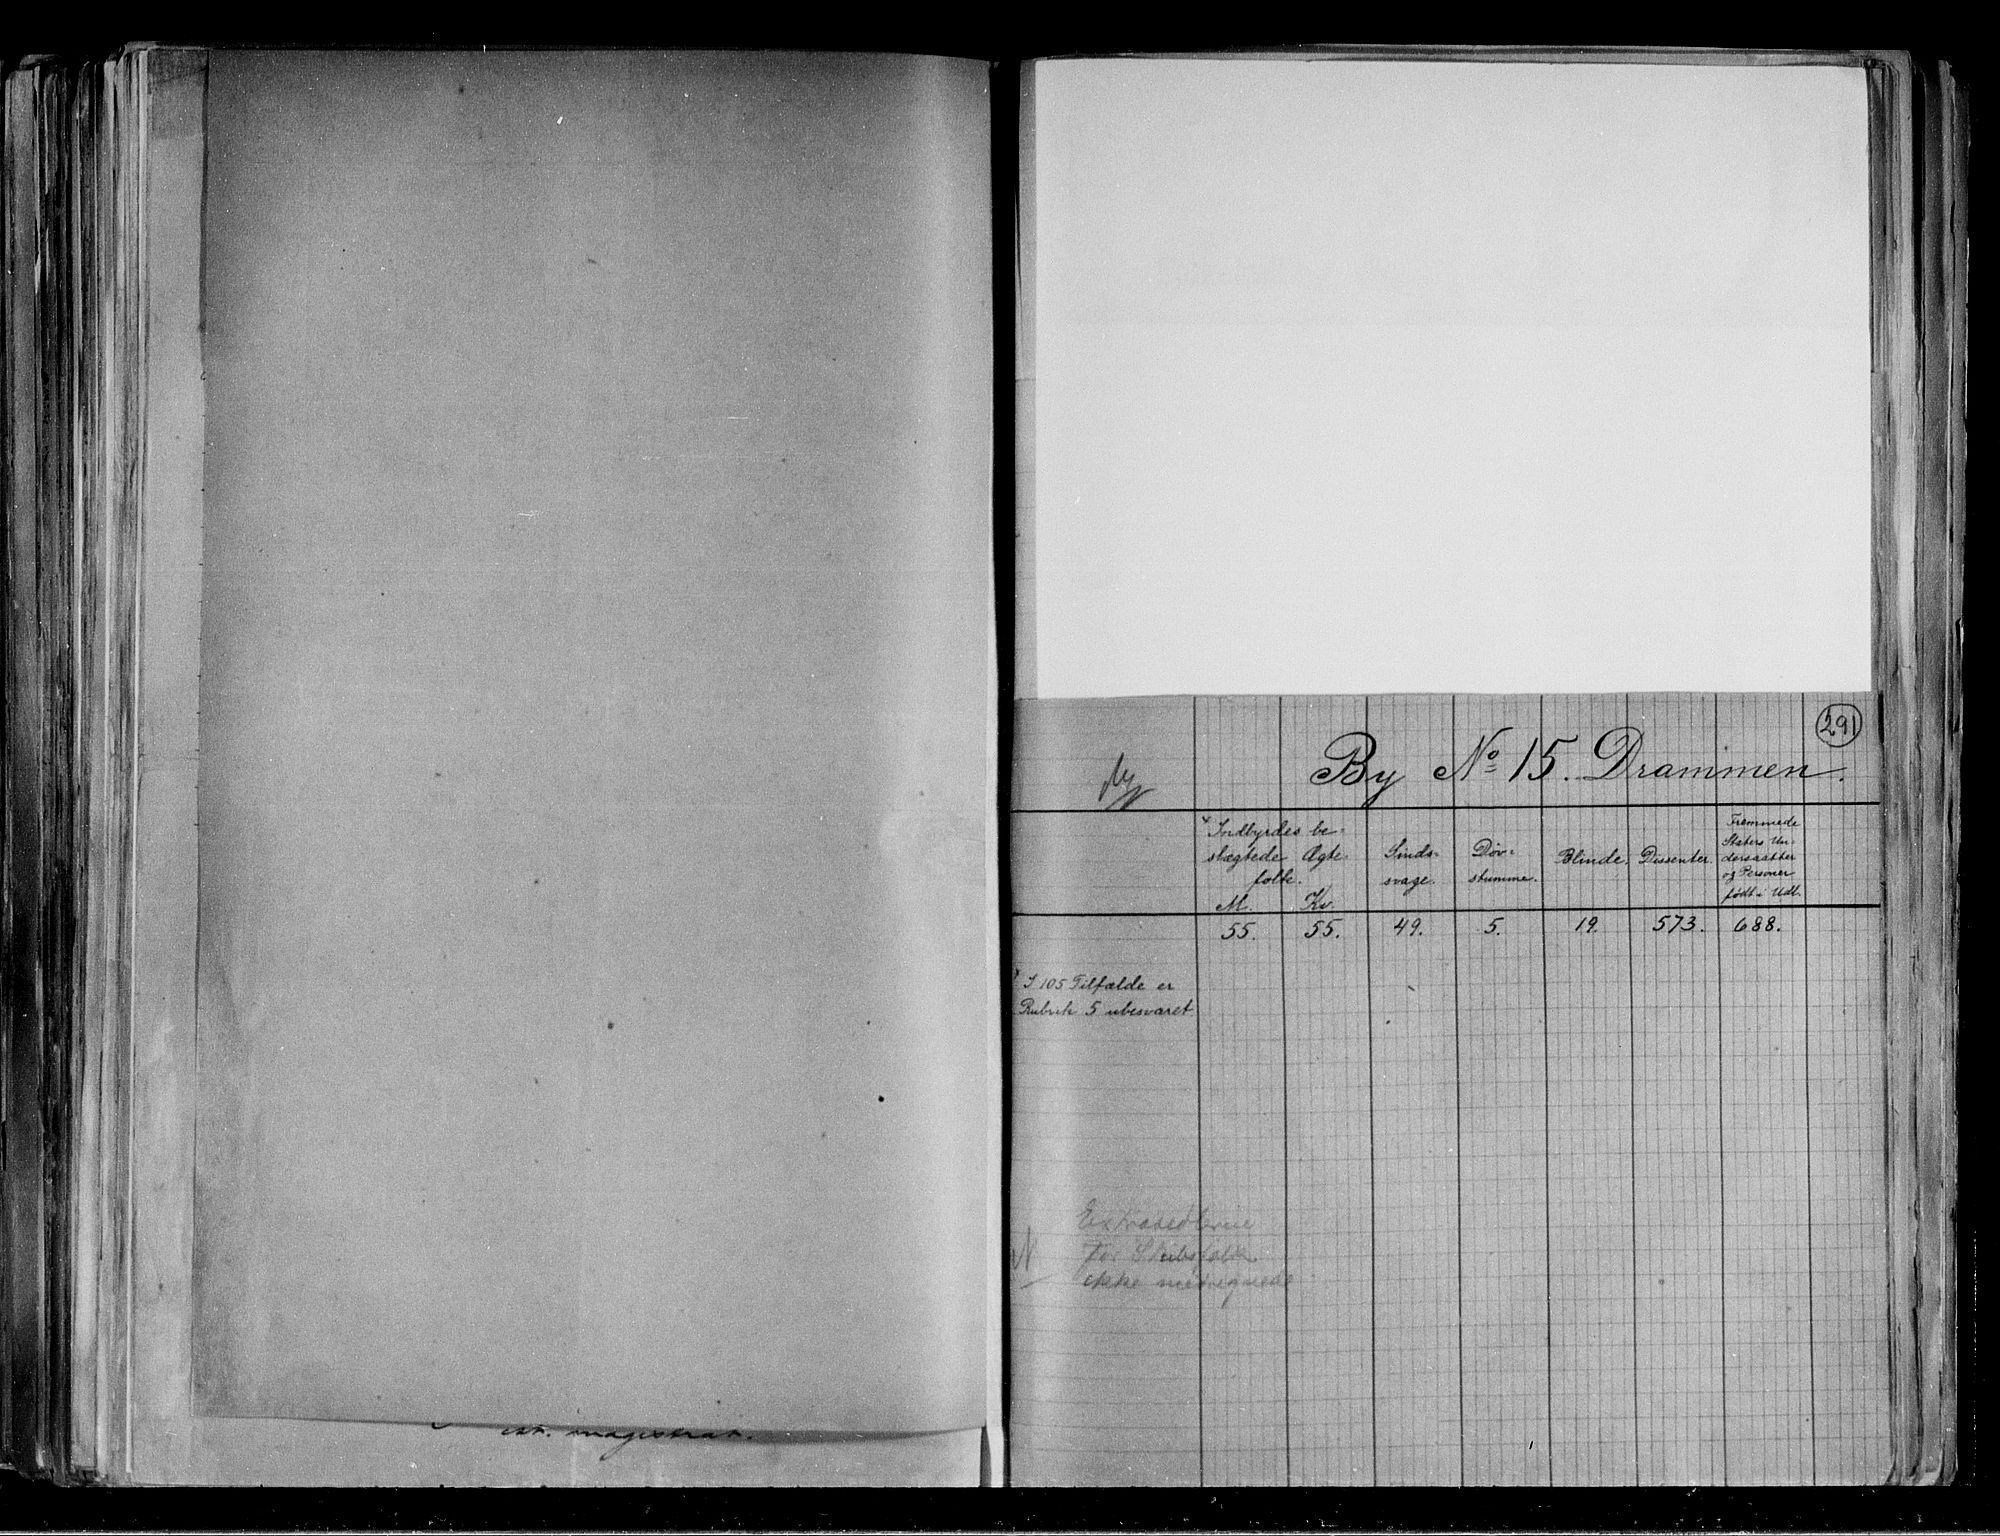 ist. magistrat.
291
By No 15. Drammen.
* Indbyrdes be-
slægtede Ægte-
folk.
M. Kv.
Sinds-
svage.
Døv-
stumme.
Blinde.
Dissenter.
Fremmede
Staters Un-
dersaatter
og Personer
født i Udl.
55. 55. 49. 5. 19. 573. 688.
* I 105 Tilfælde er
Rubrik 5 ubesvaret
Extrasedlerne
for Skibsfolk
ikke medregnede